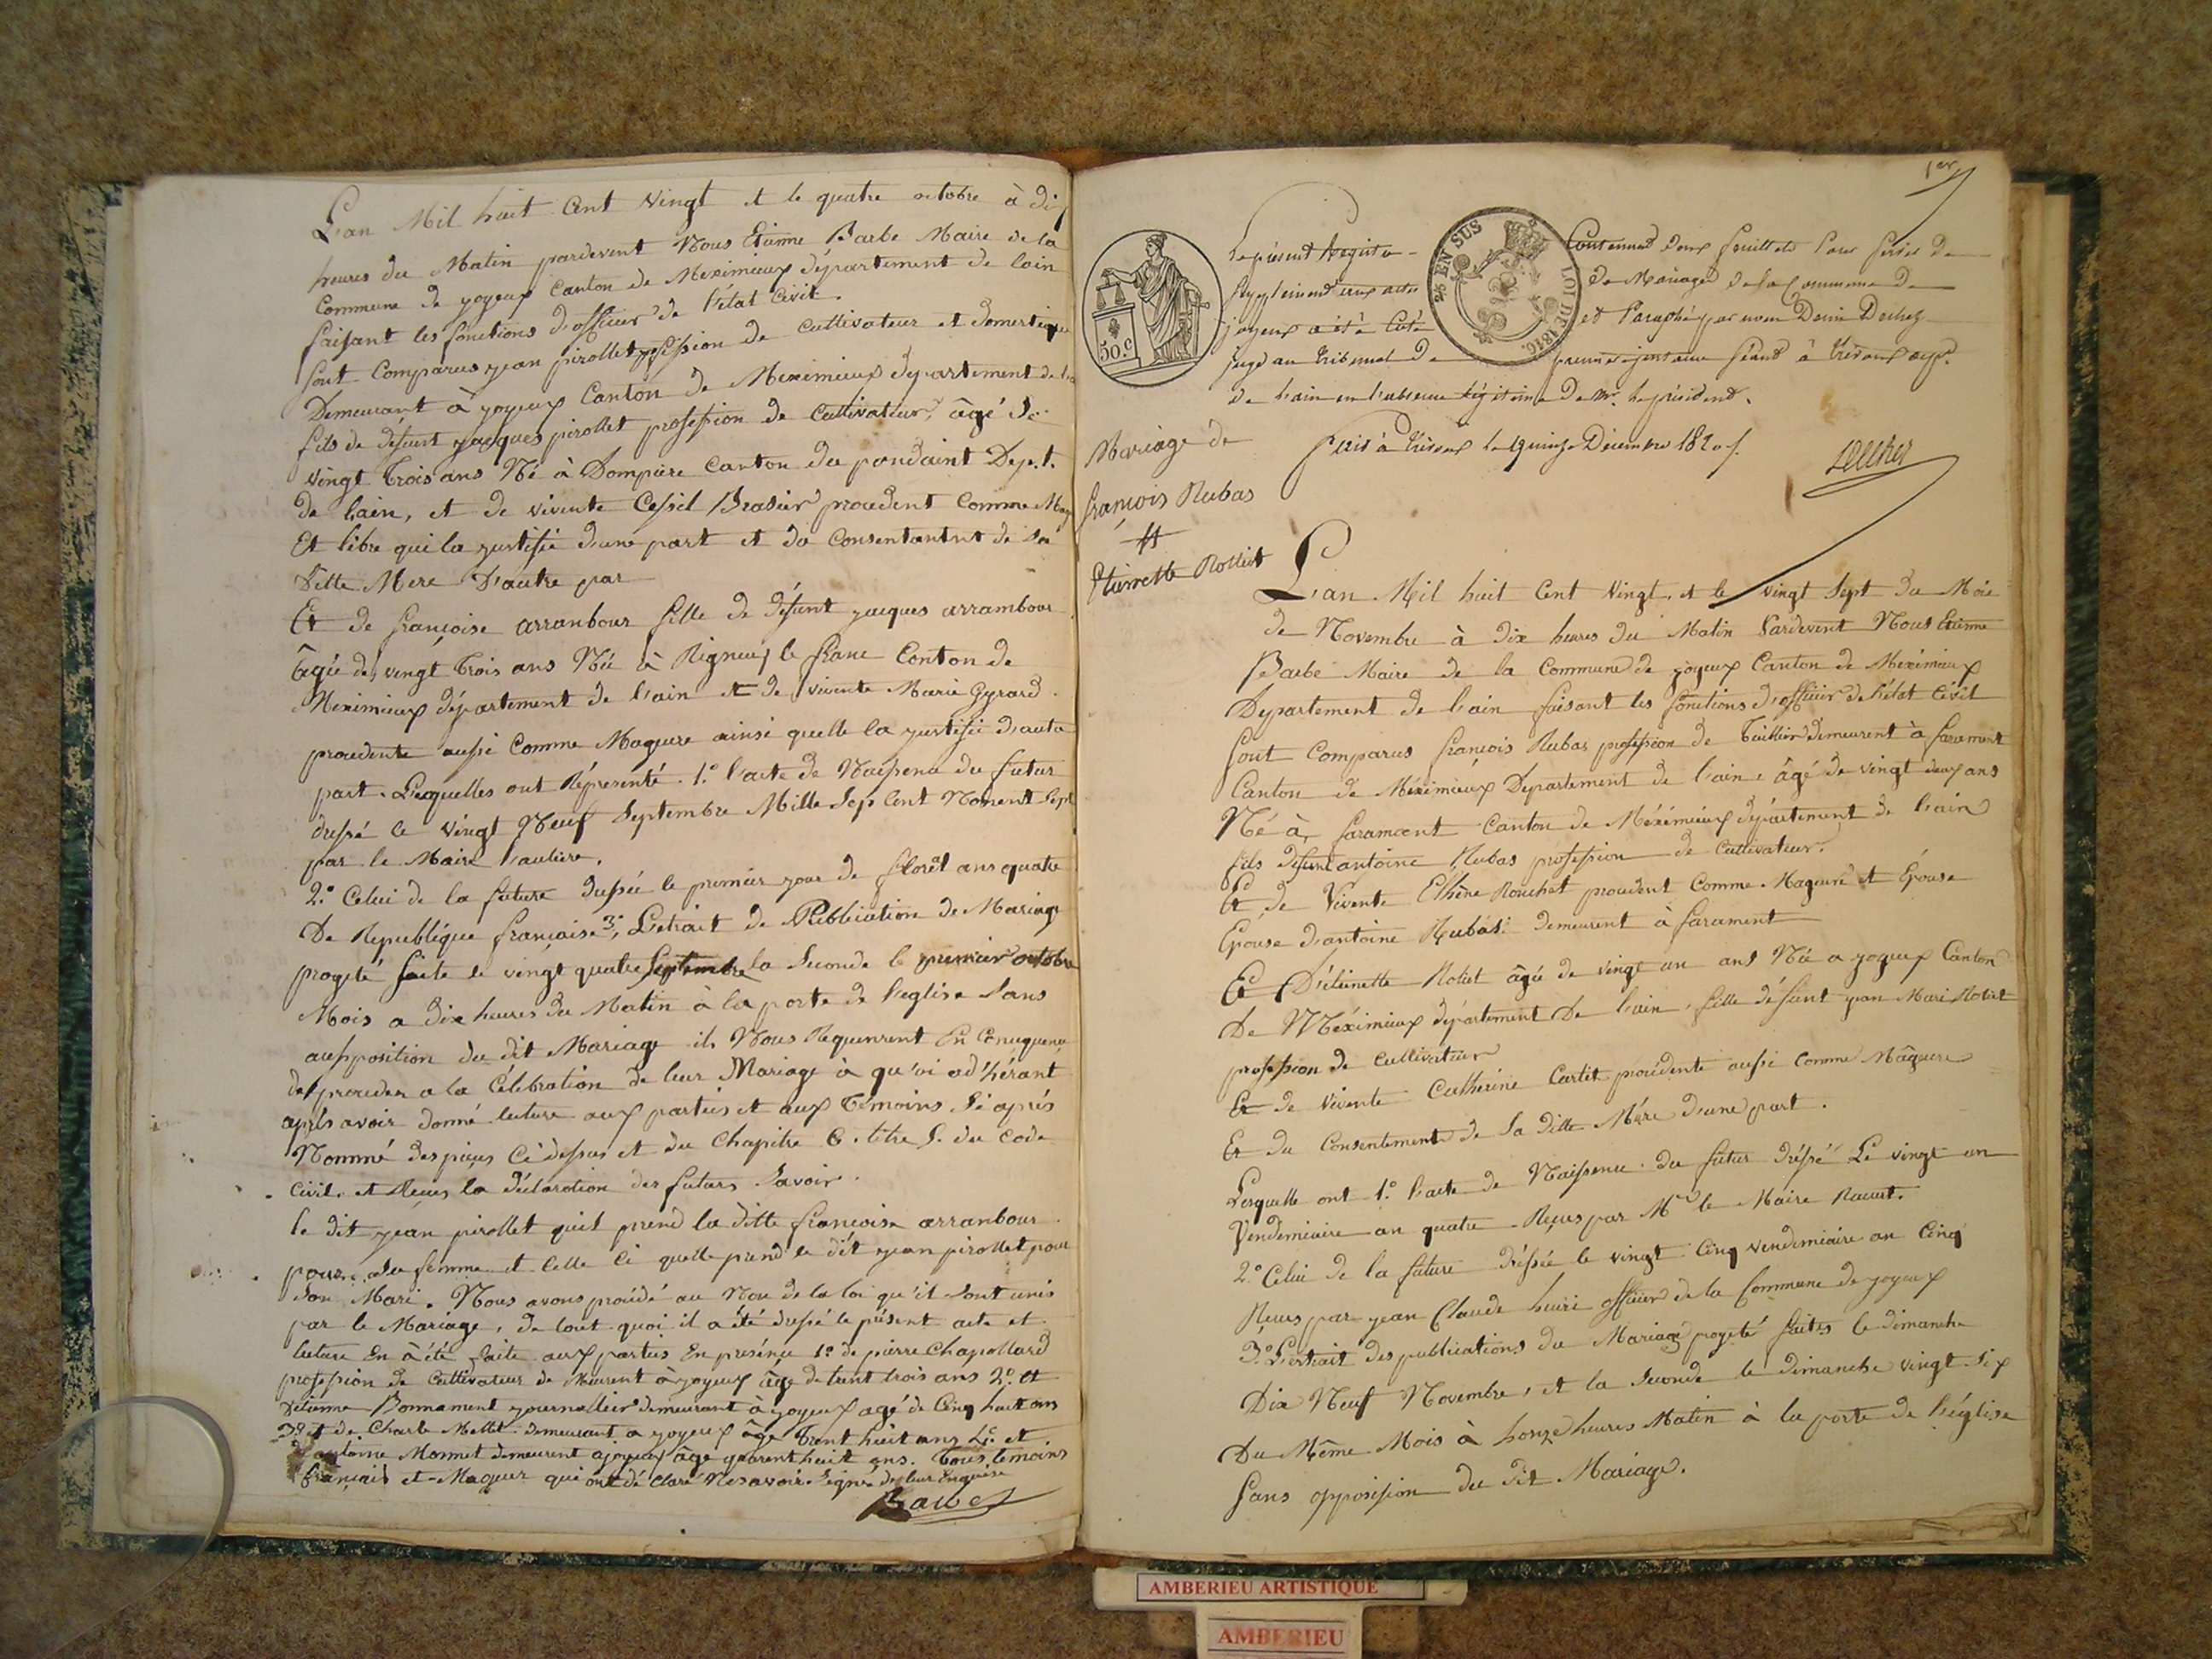 L'an Mil huit Cent Vingt et le quatre octobre à dix
heures du Matin pardevent Nous Etienne Barbe Maire de la
Commune de joyeux Canton de Meximieux département de lain
faisant les fonctions d'officier de l'état Civil.
Sont Comparus jean pirollet profession de cultivateur et domestique
Demeurant à joyeux Canton de Meximieux departement de
fils de défunt jacques pirollet profession de Cultivateur, âgé de
vingt trois ans Né à Dompiere Canton du pondaint Dept.
de lain, et de vivente Cessil Brasier procedent Comme
Et libre qui la justifie d'une part et du Consentantnt de sa
Ditte Mere D'autre par
Et de françoise arranbour fille de défunt jacques arrambour
âgée de vingt trois ans Née à Rigneux le franc Conton de
Meximieux département de l'ain et de vivente Marie Gyrard
procedente aussi Comme Mageure ainsi quelle la justifie d'autre
part. Lesquelles ont Réprésenté. 1.º l'acte de Naissence du futur
dressé le vingt Neuf Septembre Mille Sep Cent Nonent Sept
par le Maire
2.º Celui de la future dressée le premier jour de florét ans quatre
De Republique francaise 3.º L'etrait de Publication de Mariage
progeté faite le vingt quatre Septembre la Seconde le premier octobre
Mois a dix heures du Matin à la porte de l'eglise Sans
aussposition du dit Mariage ils Nous Requerent En Consequence
de proceder a la Célébration de leur Mariage à qu'oi adhérant
après avoir donné lecture aux parties et aux témoins Si après
Nommé des pieces Ci dessus et du Chapitre 6. titre 5. du Code
Civil, et Reçus la déclarotion des futurs Savoir.
le dit jean pirollet quil prend la ditte francoise arranbour
pour Sa femme et Celle Ci quelle prend le dit jean pirollet pour
Son Mari. Nous avons procédé au Nom de la loi qu'il Sont unis
par le Mariage, de tout quoi il a été dressé le présent acte et
lecture En à été faite aux parties En présence 1.º de pierre Chapollard
profession de Cultivateur de Meurent à joyeux âgé de trent trois ans 2.º et
D'etienne Bonnament journallier demeurant à joyeux agé de Cinq huit ans
3.º et de Charle Mollet demeurant a joyeux âgé trent huit ans 4.º et
D'antoine Monnet demeurent ajoyeux âgé quarent huit ans. tous témoins
français et Mageur qui ont dé claré Ne savoir Signé de leur Enquise
Barbe
1er
Le présent Registre Contenant deux feuillets Pour servir de
Supplement aux actes de Mariages de la Commune de
joyeux a été Coté et Paraphé par nous Denis Dechez
juge au tribunal de premiere instance séant à trévoux dept.
de l'ain en l'absence légitime de Mr. le président.
fait à trévoux le quinze Décembre 1820.
50.C
2/5 EN SUS
LOI DE 1816.
Mariage de
françois Rubas
et
Etiennette Rollet
L'an Mil huit Cent Vingt, et le vingt Sept du Mois
de Novembre à dix heures du Matin Pardevent Nous Etienne
Barbe Maire de la Commune de joyeux Canton de Meximieux
Departement de l'ain faisant les fonctions d'officier de l'état Civil
Sont Comparus françois Rubas profession de demeurent à farament
Canton de Méximieux Departement de l'ain, âgé de vingt deux ans
Né à, faramant Canton de Méximieux département de l'ain
fils defunt antoine Rubas profession de Cultivateur.
Et de Vivente Eléhne Ronchet procedent Comme Mageure et Epouse
Epouse d'antoine Rubas demeurent à farament
Et D'étiennette Rolet âgée de vingt un ans Née a joyeux Canton
De Méximieux département De l'ain, fille défunt jean Mari Rolet
profession de Cultivateur
Et de Vivente Catherine Cartet procédente aussi Comme Mâgeure
Et du Consentement de Sa ditte Mére d'une part.
Lesquelle ont 1.º l'acte de Naissence du futur dréssé Le vingt un
Vendemiaire an quatre Reçus par Mr le Maire
2.º Celui de la future dréssée le vingt Cinq vendemiaire an Cinq
Reçus par jean Claude officier de la Commune de joyeux
3.º L'extrait des publications du Mariage progeté faites le dimanche
Dix Neuf Novembre, et la Seconde le Dimanche vingt Six
Du Même Mois à honze heures Matin à la porte de l'église
Sans opposission du dit Mariage.
AMBERIEU ARTISTIQUE
AMBERIEU